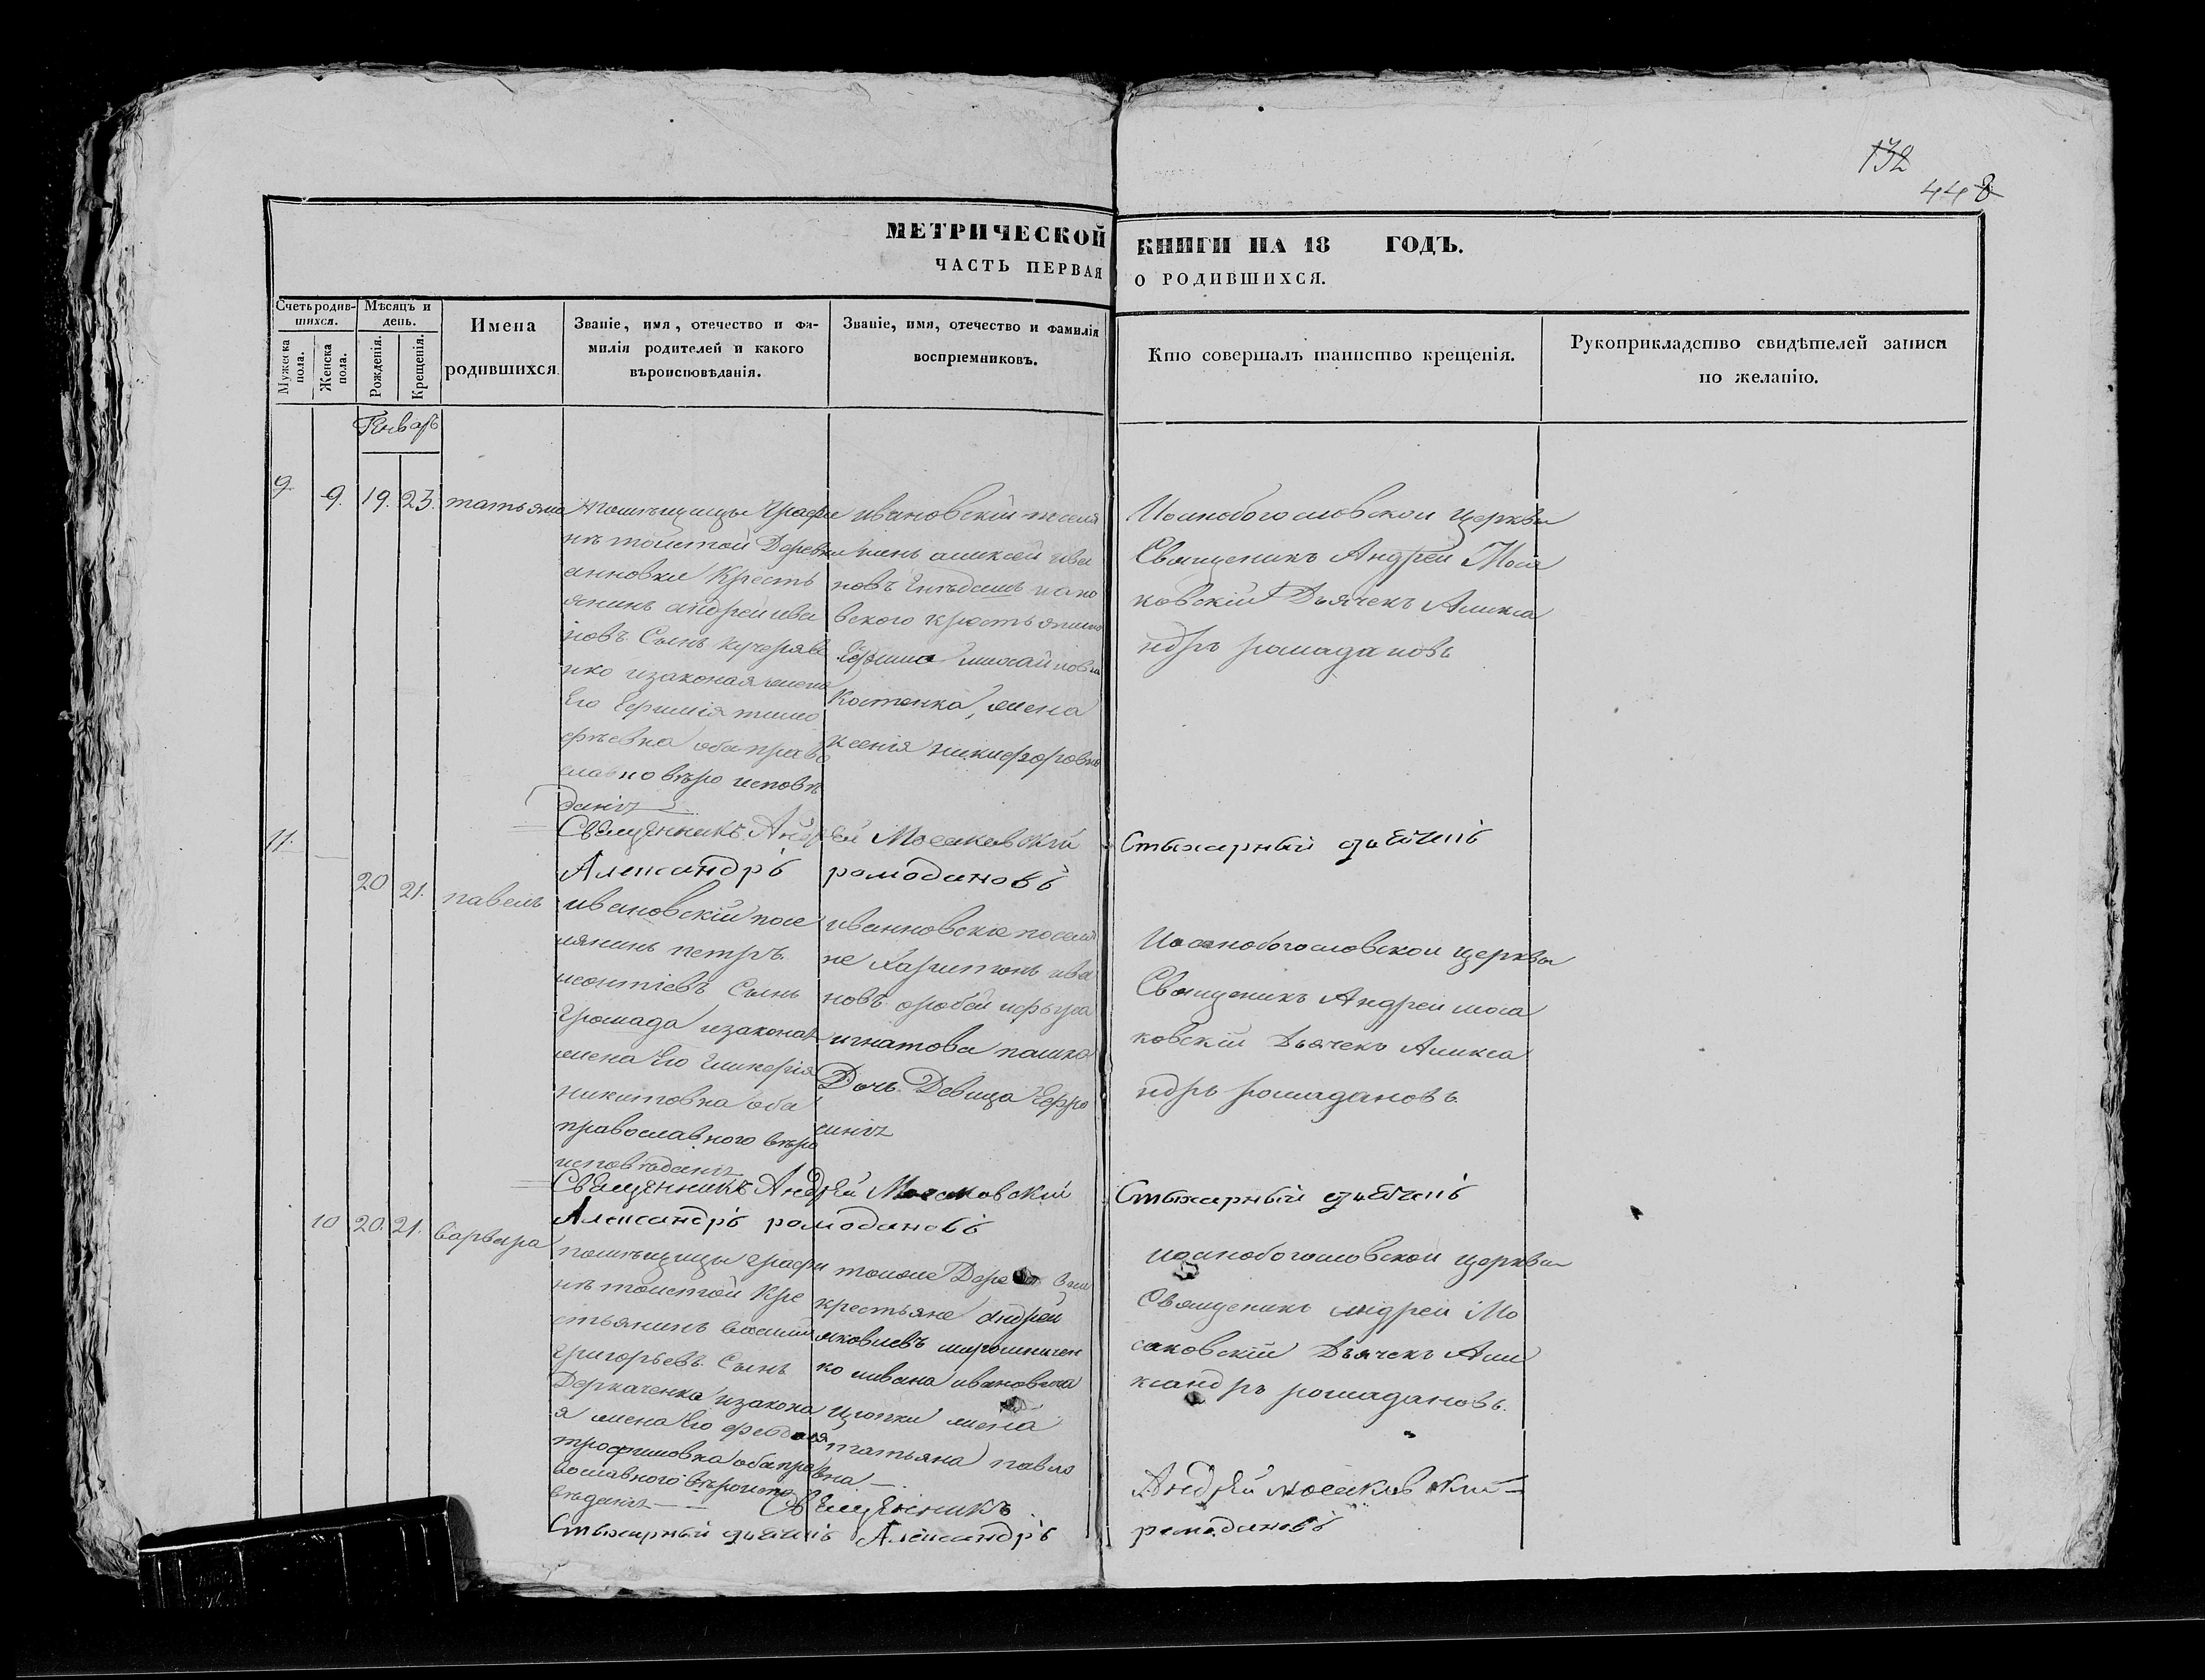 132
448
МЕТРИЧЕСКОЙ КНИГИ НА 18 ГОДЪ.
ЧАСТЬ ПЕРВАЯ О РОДИВШИХСЯ.
Счетъ родившихся.
Мужеска пола.
Женска пола.
Мѣсяцъ и день.
Рожденія.
Крещенія.
Имена родившихся
Званіе, имя, отечество и фа-
милія родителей и какого
вѣроисповѣданія.
Званіе, имя, отечество и фамилія
воспріемниковъ.
Кто совершалъ таинство крещенія.
Рукоприкладство свидѣтелей записи
по желанію.
Генварь
9.
9. 19. 23. татьяна
помѣщицы Графи
нѣ толстой Деревни
анновки Крестъ
янинъ андрей ива
новъ Сынъ кучеряве
нко изаконая жена
Его Ефимія тимо
фѣевна оба право
славно вѣро исповѣ
данія
ивановскій поселя
нинъ аликсѣй ива
новъ
вского крестьянина
михайлова
Костенка, жена
ксенія никифоровна
Иоанобогословской Церкви
Священикъ Андрей Моса
ковскій Дьячекъ Аликса
ндръ ромадановъ
Священникъ Андрей Мосаковскій Стихарный дьячекъ
Александръ ромодановъ
11.
20 21. павелъ
ивановскій посе
лянинъ петръ
леонтіевъ Сынъ
Громада изаконая
жена Его Гликерія
никитовна оба
православного вѣро
исповѣданія
иванновскіе поселя
не Харитонъ ива
новъ
игнатова пашко
Дочь Девица Ефро
синія
Иоанобогословской церкви
Священикъ Андреи моса
ковскій Дьячекъ Аликса
ндръ ромадановъ.
Священникъ Андрей Мосаковскій Стихарный дьячекъ
Александръ ромодановъ
10 20. 21. варвара
помѣщицы графи
нѣ толстой Кре
стьянинъ василий
григорьевъ Сынъ
Деркаченко изакона
я жена Его феодосія
трофимовна оба пра
вославного вѣроиспо
вѣданія
крестьяне андрей
яковлевъ мирошничен
ко ивана ивановича
жена
татьяна павло
вна
иоанобогословской церкви
Священикъ андреи Мо
саковскій Дьячекъ Али
ксандръ ромадановъ.
Священникъ Андрей мосаковскій
Стихарный дьячекъ Александръ ромодановъ